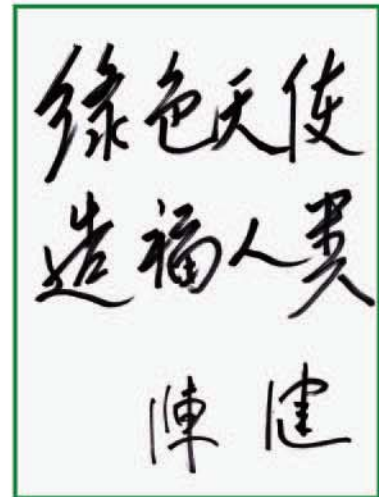 綠色天使
造福人类
陳健